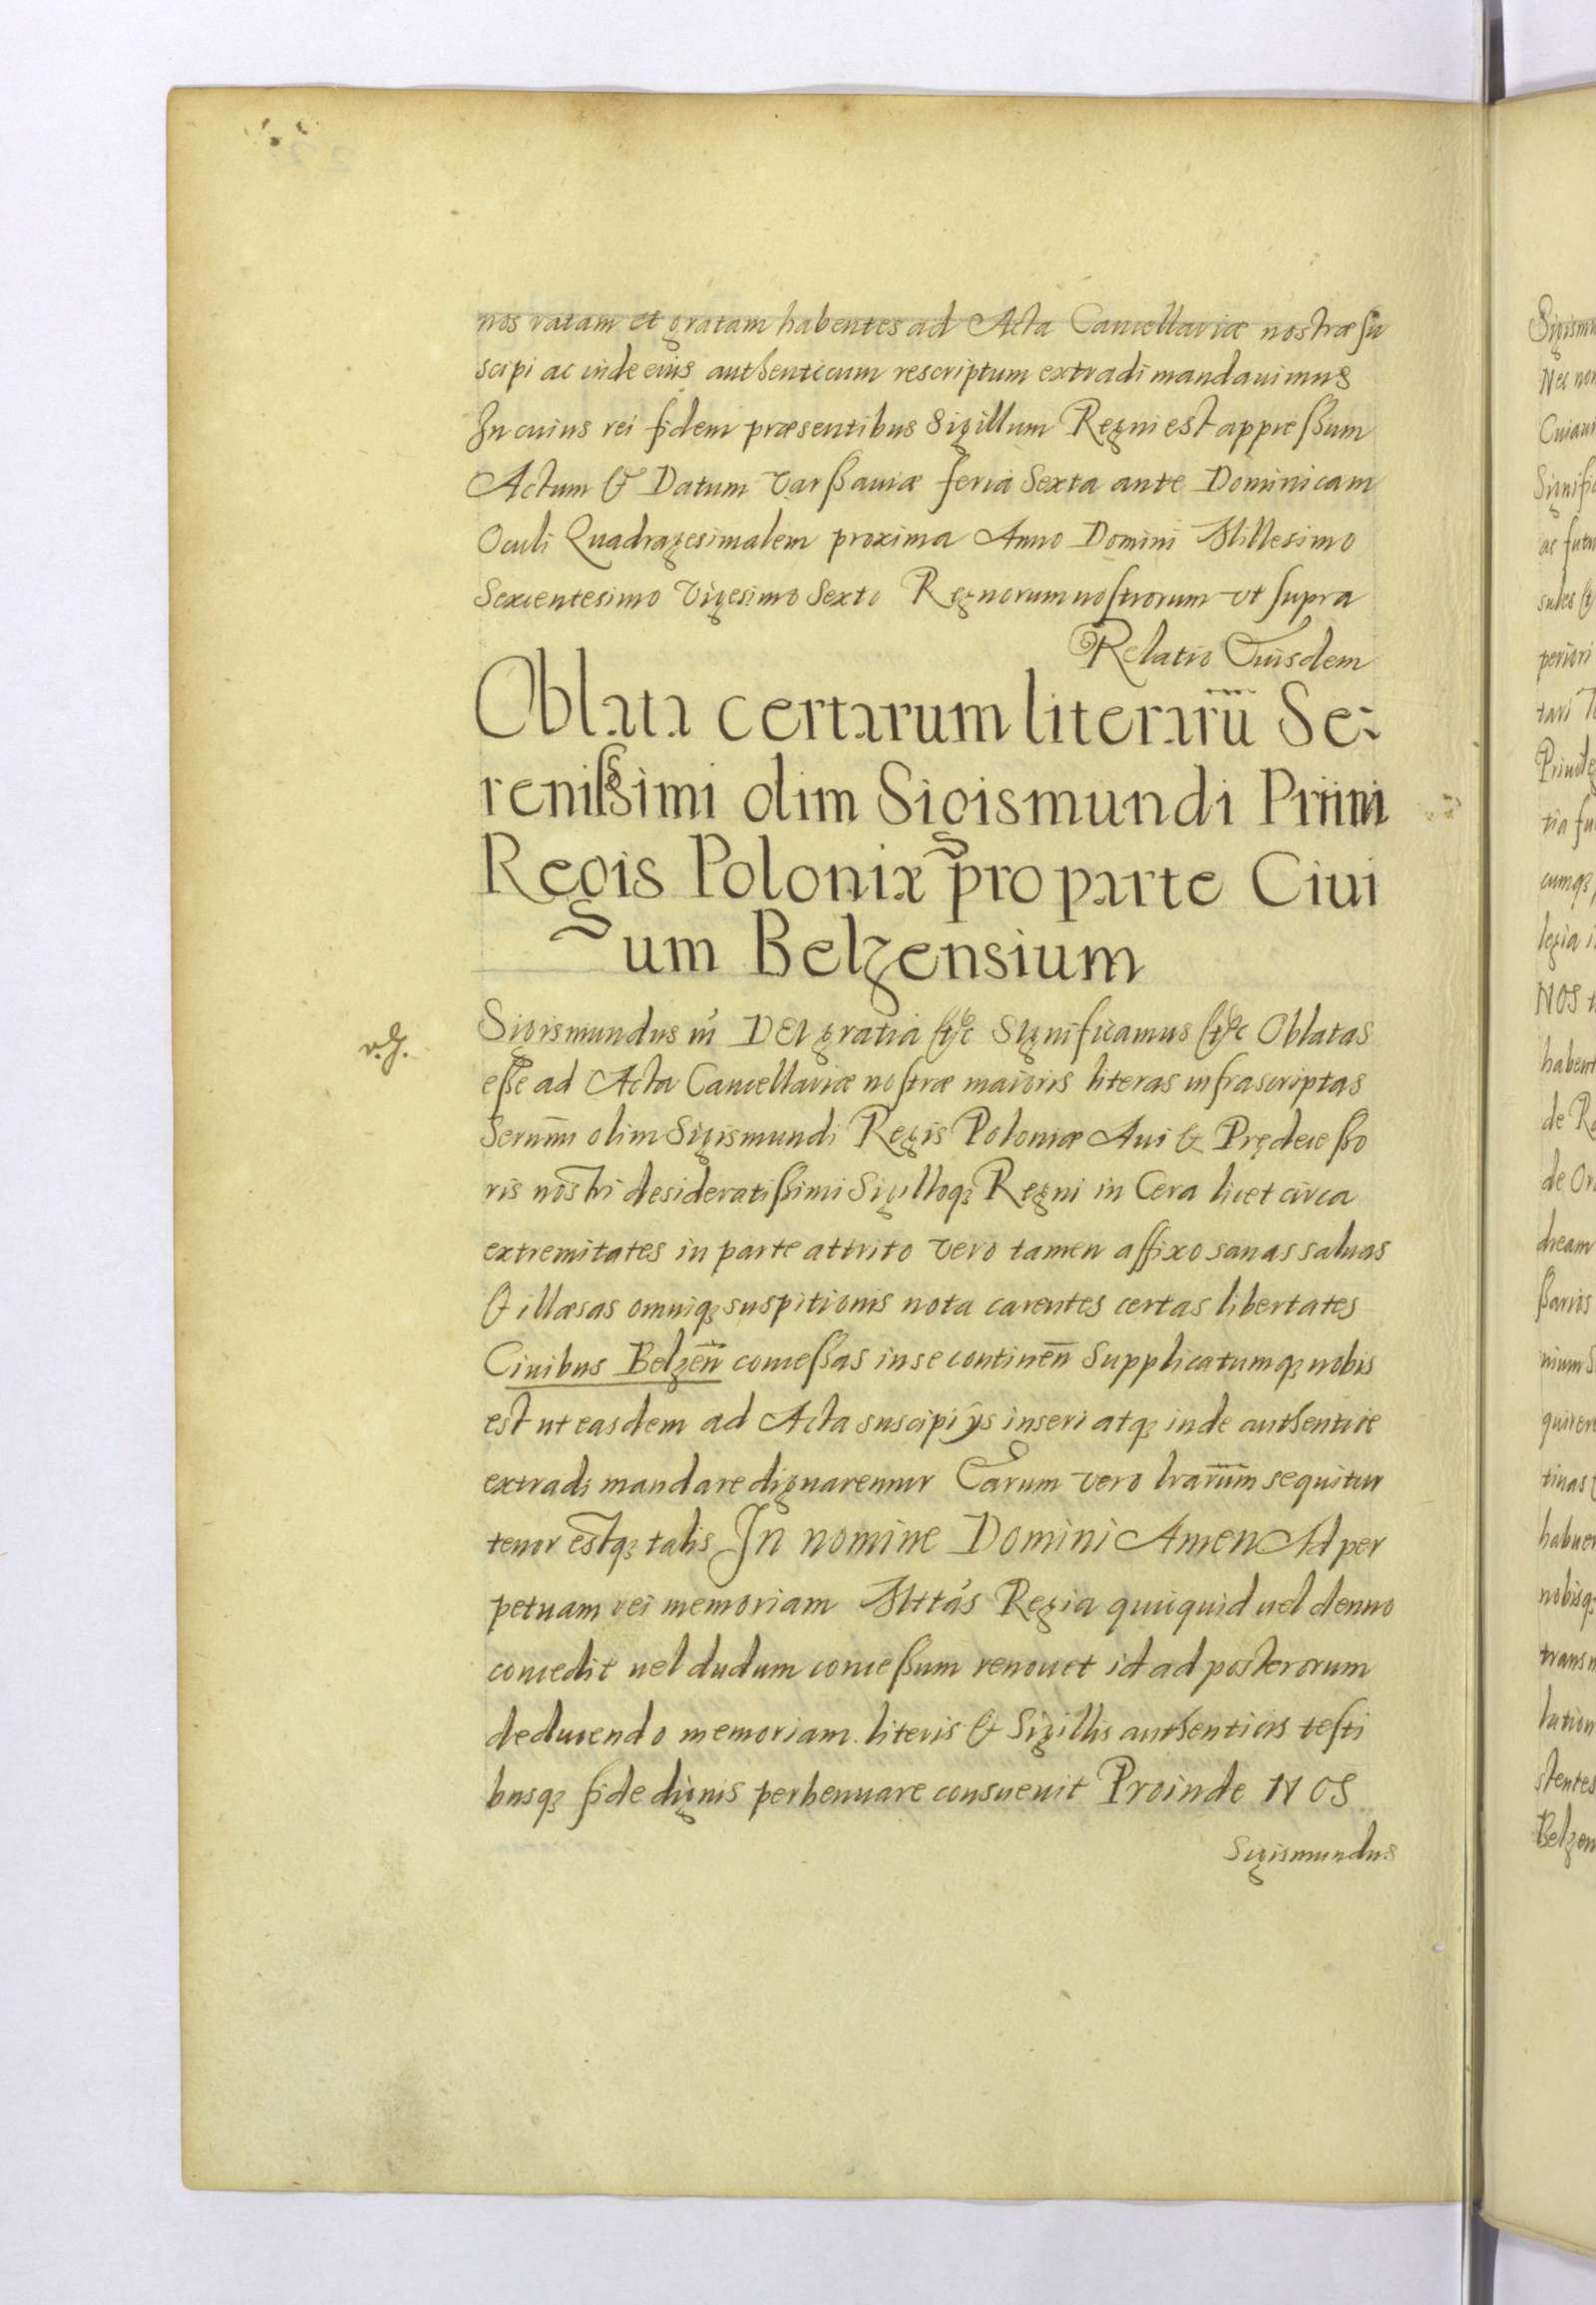 nos ratam et gratam habentes ad Acta Cancellariæ nostræ su
scipi ac inde eius authenticum rescriptum extradi mandauimus
In cuius rei fidem præsentibus Sigillum Regni est appressum
Actum & Datum Varssauiæ feria Sexta ante Dominicam
Oculi Quadragesimalem proxima Anno Domini Millesimo
Sexcentesimo Vigesimo Sexto Regnorum nostrorum vt supra
Relatio Eiusdem
Oblata certarum literarū Se-
renissimi olim Sigismundi Primi
Regis Poloniæ pro parte Ciui
um Belzensium
v.g.
Sigismundus III DEI gratia &c Significamus &c Oblatas
esse ad Acta Cancellariæ nostræ maioris literas infrascriptas
Serenmi olim Sigismundi Regis Poloniæ Aui & Prędecesso
ris nostri desideratissimi Sigilloq; Regni in Cera licet circa
extremitates in parte attrito vero tamen affixo sanas saluas
& illæsas omniq; suspitionis nota carentes certas libertates
Ciuibus Belzen̄ concessas in se continen̄ Supplicatumq; nobis
est ut easdem ad Acta suscipi ÿs inseri atq; inde authentice
extradi mandare dignaremur Earum vero lrarum sequitur
tenor estq; talis In nomine Domini Amen Ad per
petuam rei memoriam Mttás Regia quicquid uel denuo
concedit uel dudum concessum renouet id ad posterorum
deducendo memoriam literis & Sigillis authenticis testi
busq; fide dignis perhennare consueuit Proinde NOS
Sigismundus